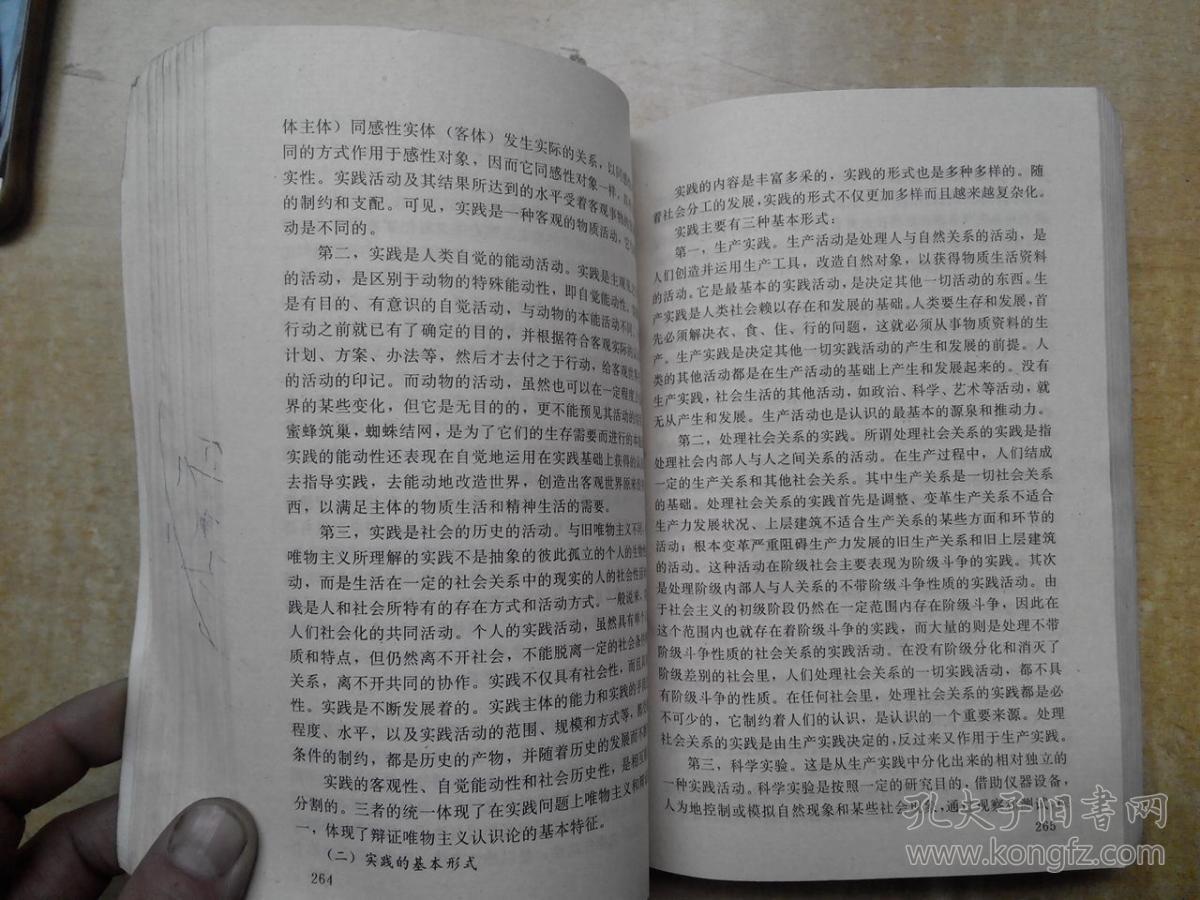 体主体）同感性实体（客体）发生实际的关系，以
同的方式作用于感性对象，因而它同感性对象一样，
实性。实践活动及其结果所达到的水平受着客观事物的
的制约和支配。可见，实践是一种客观的物质活动，它
动是不同的。
第二，实践是人类自觉的能动活动。实践是主观见
的活动，是区别于动物的特殊能动性，即自觉能动性。
是有目的、有意识的自觉活动，与动物的本能活动不同。
行动之前就已有了确定的目的，并根据符合客观实际的
计划、方案、办法等，然后才去付之于行动，给客观世
的活动的印记。而动物的活动，虽然也可以在一定程度
界的某些变化，但它是无目的的，更不能预见其活动的
蜜蜂筑巢，蜘蛛结网，是为了它们的生存需要而进行的本
实践的能动性还表现在自觉地运用在实践基础上获得的
去指导实践，去能动地改造世界，创造出客观世界原来
西，以满足主体的物质生活和精神生活的需要。
第三，实践是社会的历史的活动。与旧唯物主义不同，
唯物主义所理解的实践不是抽象的彼此孤立的个人的生物
动，而是生活在一定的社会关系中的现实的人的社会性
践是人和社会所特有的存在方式和活动方式。一般说来，
人们社会化的共同活动。个人的实践活动，虽然具有
质和特点，但仍然离不开社会，不能脱离一定的社会条
关系，离不开共同的协作。实践不仅具有社会性，而且
性。实践是不断发展着的。实践主体的能力和实践的手
程度、水平，以及实践活动的范围、规模和方式等，都
条件的制约，都是历史的产物，并随着历史的发展而不
实践的客观性、自觉能动性和社会历史性，是相互
分割的。三者的统一体现了在实践问题上唯物主义和辩
一，体现了辩证唯物主义认识论的基本特征。
（二）实践的基本形式
264
实践的内容是丰富多采的，实践的形式也是多种多样的。随
着社会分工的发展，实践的形式不仅更加多样而且越来越复杂化。
实践主要有三种基本形式：
第一，生产实践。生产活动是处理人与自然关系的活动，是
人们创造并运用生产工具，改造自然对象，以获得物质生活资料
的活动。它是最基本的实践活动，是决定其他一切活动的东西。生
产实践是人类社会赖以存在和发展的基础。人类要生存和发展，首
先必须解决衣、食、住、行的问题，这就必须从事物质资料的生
产。生产实践是决定其他一切实践活动的产生和发展的前提。人
类的其他活动都是在生产活动的基础上产生和发展起来的。没有
生产实践，社会生活的其他活动，如政治、科学、艺术等活动，就
无从产生和发展。生产活动也是认识的最基本的源泉和推动力。
第二，处理社会关系的实践。所谓处理社会关系的实践是指
处理社会内部人与人之间关系的活动。在生产过程中，人们结成
一定的生产关系和其他社会关系。其中生产关系是一切社会关系
的基础。处理社会关系的实践首先是调整、变革生产关系不适合
生产力发展状况、上层建筑不适合生产关系的某些方面和环节的
活动；根本变革严重阻碍生产力发展的旧生产关系和旧上层建筑
的活动。这种活动在阶级社会主要表现为阶级斗争的实践。其次
是处理阶级内部人与人关系的不带阶级斗争性质的实践活动。由
于社会主义的初级阶段仍然在一定范围内存在阶级斗争，因此在
这个范围内也就存在着阶级斗争的实践，而大量的则是处理不带
阶级斗争性质的社会关系的实践活动。在没有阶级分化和消灭了
阶级差别的社会里，人们处理社会关系的一切实践活动，都不具
有阶级斗争的性质。在任何社会里，处理社会关系的实践都是必
不可少的，它制约着人们的认识，是认识的一个重要来源。处理
社会关系的实践是由生产实践决定的，反过来又作用于生产实践。
第三，科学实验。这是从生产实践中分化出来的相对独立的
一种实践活动。科学实验是按照一定的研究目的，借助仪器设备，
人为地控制或模拟自然现象和某些社会现象，通过观察
265
孔夫子旧书网
www.kongfz.com